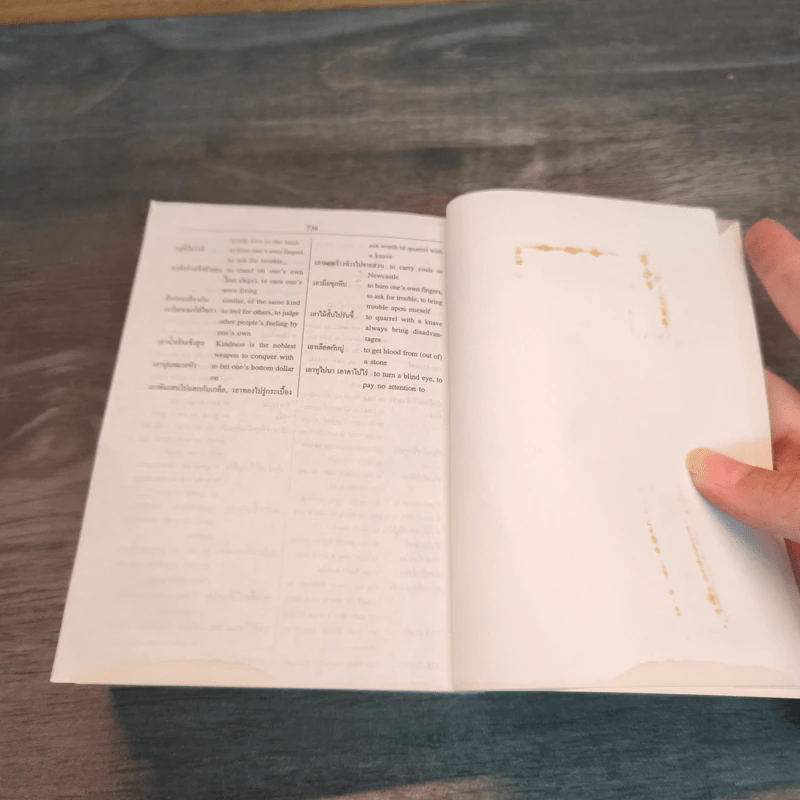 734
to burn one's own fingers,
to ask for trouble,
to stand on one's own
(two legs), to earn one's
own living
similar, of the same kind
to feel for others, to judge
other people's feeling by
one's own
เอาน้ำเย็นเข้าลูบ Kindness is the noblest
weapon to conquer with
to bet one's bottom dollar
on
เอาพิมเสนไปแลกกับเกลือ, เอาทองไปรู่กระเบื้อง
are worth to quarrel with
a knave
เอามะพร้าวห้าวไปขายสวน to carry coals to
Newcastle
เอามือซุกหีบ to burn one's own fingers,
to ask for trouble, to bring
trouble upon oneself
เอาไม้สั้นไปรันขี้ to quarrel with a knave
always bring disadvan-
tages
เอาเลือดกับปู to get blood from (out of)
a stone
เอาหูไปนา เอาตาไปไร่ to turn a blind eye, to
pay no attention to